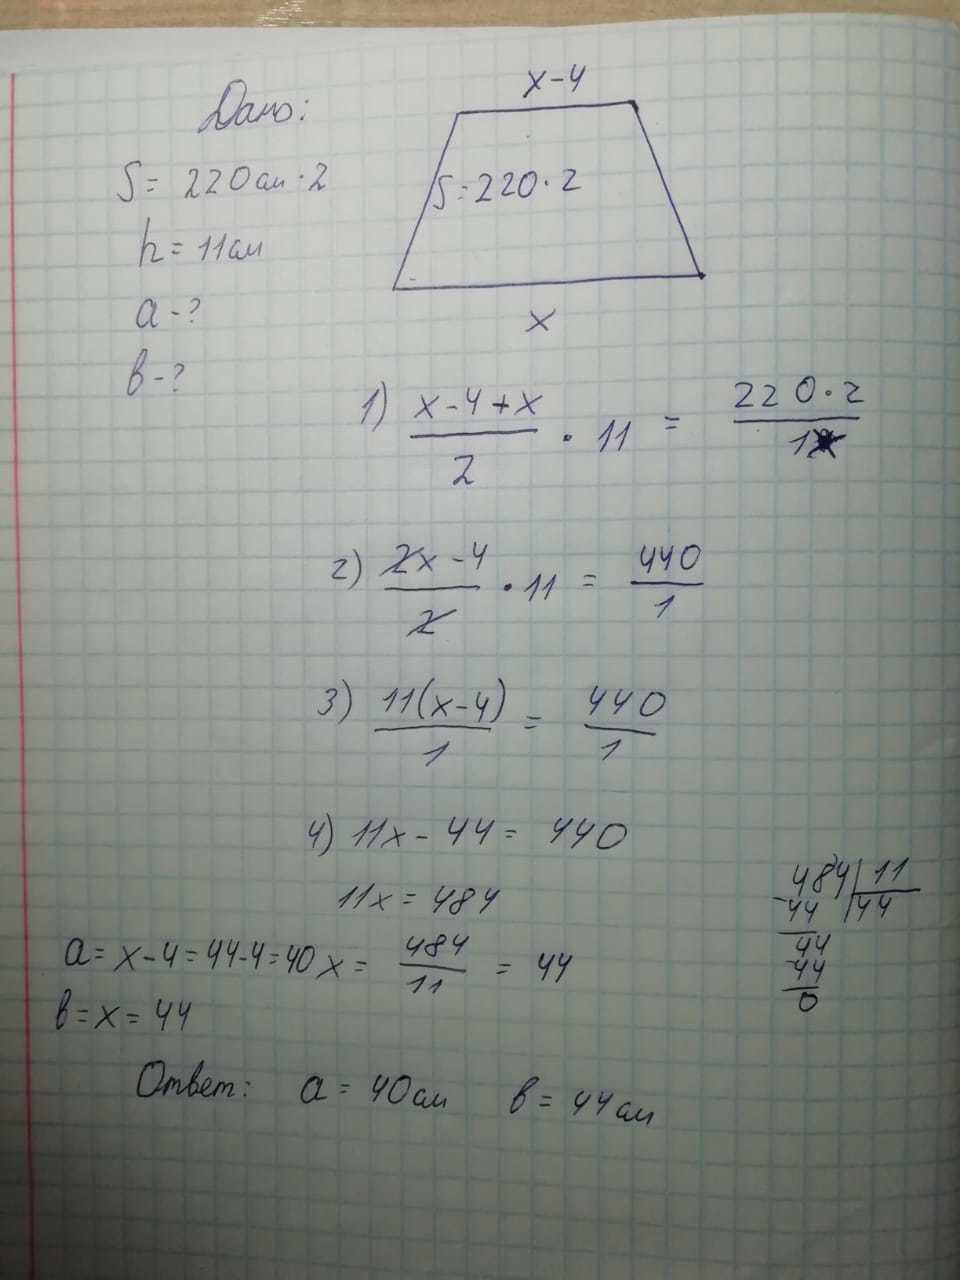 Дано:
S = 220см · 2
h = 11см
a - ?
в - ?
x-4
S = 220 · 2
x
1) (x - 4 + x)/2 · 11 = (220 · 2)/1
2) (2x - 4)/2 · 11 = 440/1
3) 11(x-4)/1 = 440/1
4) 11x - 44 = 440
11x = 484
a = x-4 = 44-4 = 40
x = 484/11 = 44
в = x = 44
484 | 11
-44 | 44
44
-44
0
Ответ: a = 40см в = 44см